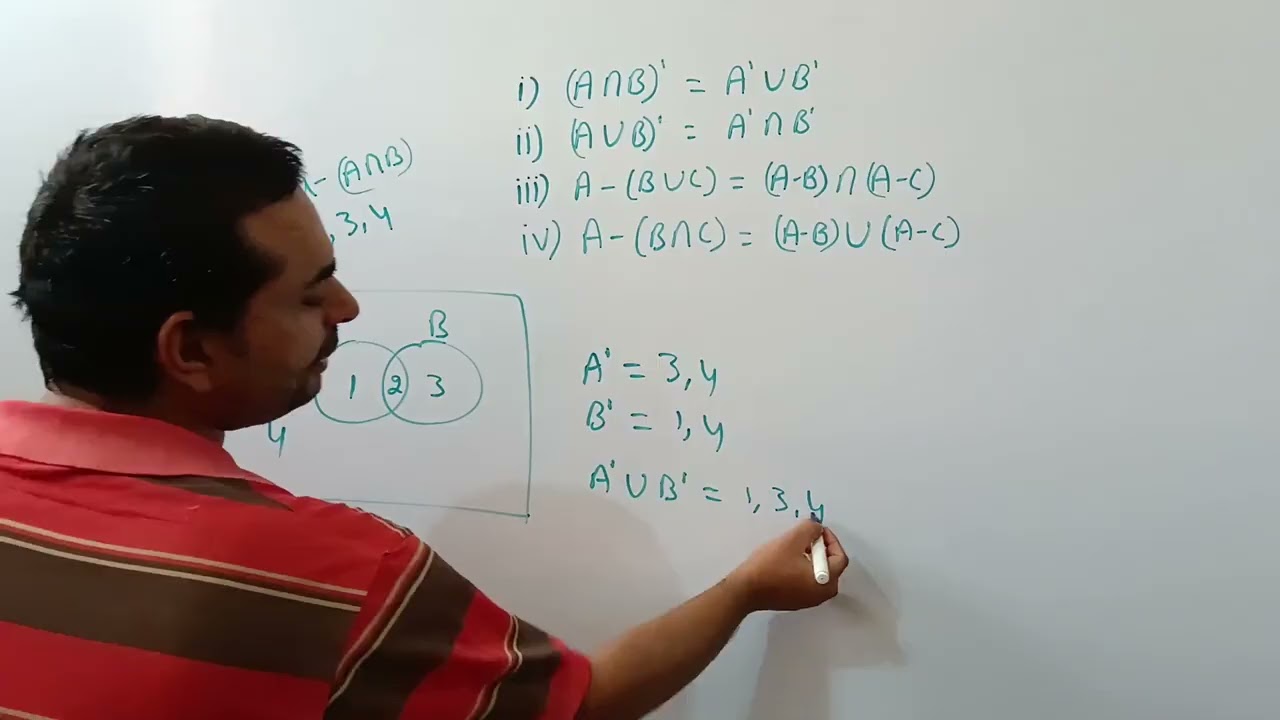 i) (A∩B)' = A'∪B'
ii) (A∪B)' = A'∩B'
iii) A-(B∪C) = (A-B)∩(A-C)
iv) A-(B∩C) = (A-B)∪(A-C)
-(A∩B)
,3,4
B
1 2 3
4
A' = 3,4
B' = 1,4
A'∪B' = 1,3,4